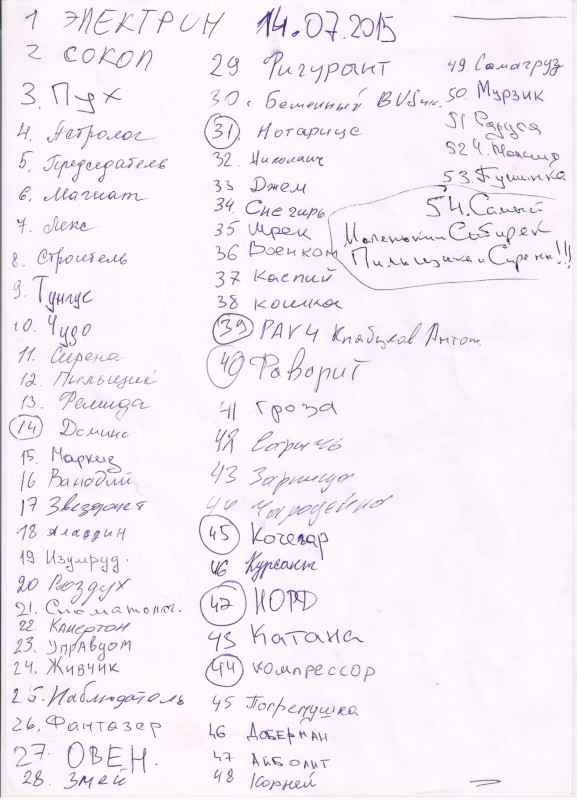 1 ЭЛЕКТРОН 14.07.2015
2 СОКОЛ
3. Пух
4. Астролог
5. Председатель
6. Магнат
7. Лекс
8. Строитель
9. Тунгус
10. Чудо
11. Сирена
12. Пильщик
13. Фемида
14 Домино
15. Маркиз
16 Ванадий
17 Звездочет
18 Аладдин
19 Изумруд.
20 Воздух
21. Стоматолог.
22. Камертон
23. УПРАВДОМ
24. ЖИВЧИК
25. Наблюдатель
26. Фантазер
27. ОВЕН.
28. Змей
29 Фигурант
30.
31. Нотариус
32. Николаич
33 Джем
34. Снегирь
35 Шрек
36 Военком
37 Каспий
38 кошка
39 РАУЧ Антон.
40 Фаворит
41 гроза
42 Сарыч
43 Зарница
44
45 Кочегар
46 Курсант
47 НОРД
43 Катана
44 компрессор
45 Погремушка
46 ДОБЕРМАН
47 АЙБОЛИТ
48 Корней
49. Самогруз
50. Мурзик
51
52
53. Пушинка
54. Самый
Маленький Сибирёк
Пильщика и Сирены!!!